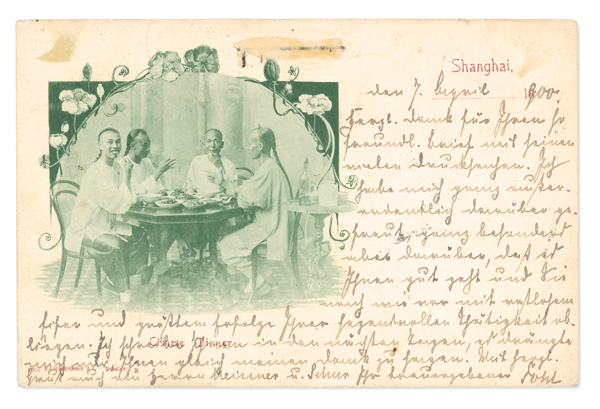 Shanghai,
den 7. April 1900.
Herzl. Dank für Ihren so
freundl. Brief mit seinen
vielen Drucksachen. Ich
habe mich ganz außer-
ordentlich darüber ge-
freut, ganz besonders
aber darüber, daß es
Ihnen gut geht und Sie
nach wie vor mit rastlosem
Eifer und größtem Erfolge Ihrer segensvollen Thätigkeit ob-
liegen. Ich schreibe Ihnen in den nächsten Tagen, es drängte
mich Ihnen gleich meinen Dank zu sagen. Mit herzl.
Gruß auch an Herrn u. Ihr treuergebener
Chinese Dinner